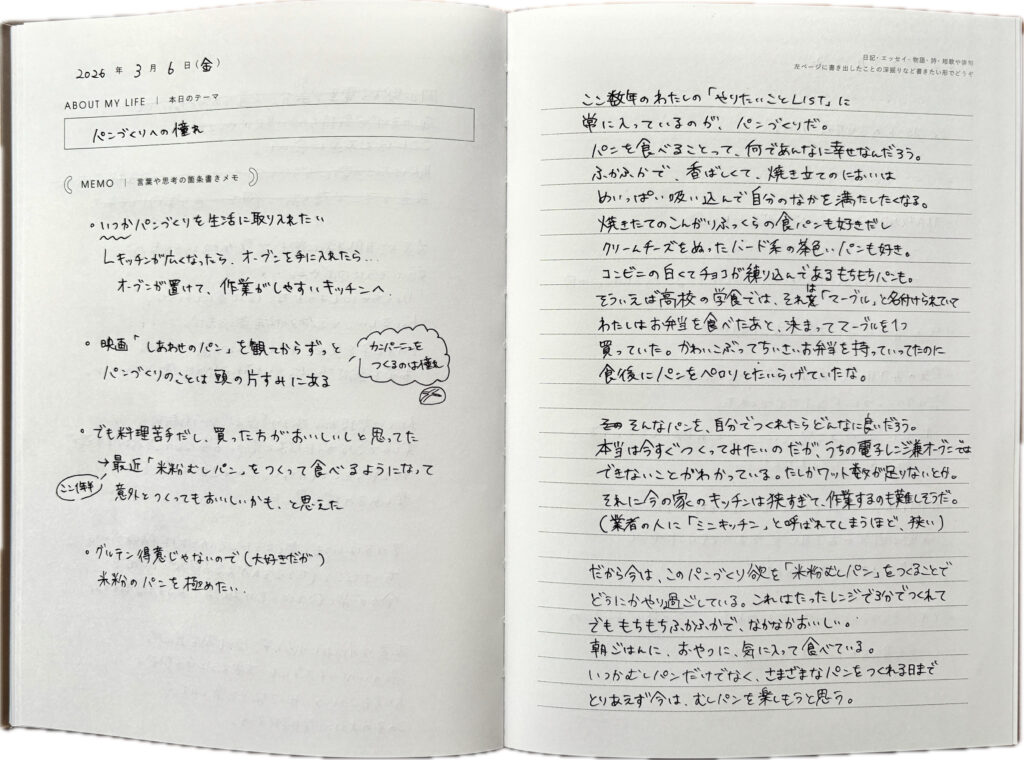 2026 年 3 月 6 日(金)
ABOUT MY LIFE | 本日のテーマ
パンづくりへの憧れ
MEMO | 言葉や思考の箇条書きメモ
・いつかパンづくりを生活に取り入れたい
└キッチンが広くなったら、オーブンを手に入れたら…
オーブンが置けて、作業がしやすいキッチンへ
・映画「しあわせのパン」を観てからずっと
パンづくりのことは頭の片すみにある
カンパーニュを
つくるのは憧れ
・でも料理苦手だし、買った方がおいしいしと思ってた
→最近「米粉むしパン」をつくって食べるようになって
ここ1年半
意外とつくってもおいしいかも、と思えた
・グルテン得意じゃないので(大好きだが)
米粉のパンを極めたい.
日記・エッセイ・物語・詩・短歌や俳句
左ページに書き出したことの深掘りなど書きたい形でどうぞ
ここ数年のわたしの「やりたいことList」に
常に入っているのが、パンづくりだ。
パンを食べることって、何であんなに幸せなんだろう。
ふかふかで、香ばしくて、焼き立てのにおいは
めいっぱい吸い込んで自分のなかを満たしたくなる。
焼きたてのこんがりふっくらの食パンも好きだし
クリームチーズをぬったハード系の茶色いパンも好き。
コンビニの白くてチョコが練り込んであるもちもちパンも。
そういえば高校の学食では、それは「マーブル」と名付けられていて
わたしはお弁当を食べたあと、決まってマーブルを1つ
買っていた。かわいこぶってちいさいお弁当を持っていってたのに
食後にパンをペロリとたいらげていたな。
そんなパンを、自分でつくれたらどんなに良いだろう。
本当は今すぐつくってみたいのだが、うちの電子レンジ兼オーブンでは
できないことがわかっている。たしかワット数が足りないとか。
それに今の家のキッチンは狭すぎて、作業するのも難しそうだ。
(業者の人に「ミニキッチン」と呼ばれてしまうほど、狭い)
だから今は、このパンづくり欲を「米粉むしパン」をつくることで
どうにかやり過ごしている。これはたったレンジで3分でつくれて
でももちもちふかふかで、なかなかおいしい。
朝ごはんに、おやつに、気に入って食べている。
いつかむしパンだけでなく、さまざまなパンをつくれる日まで
とりあえず今は、むしパンを楽しもうと思う。